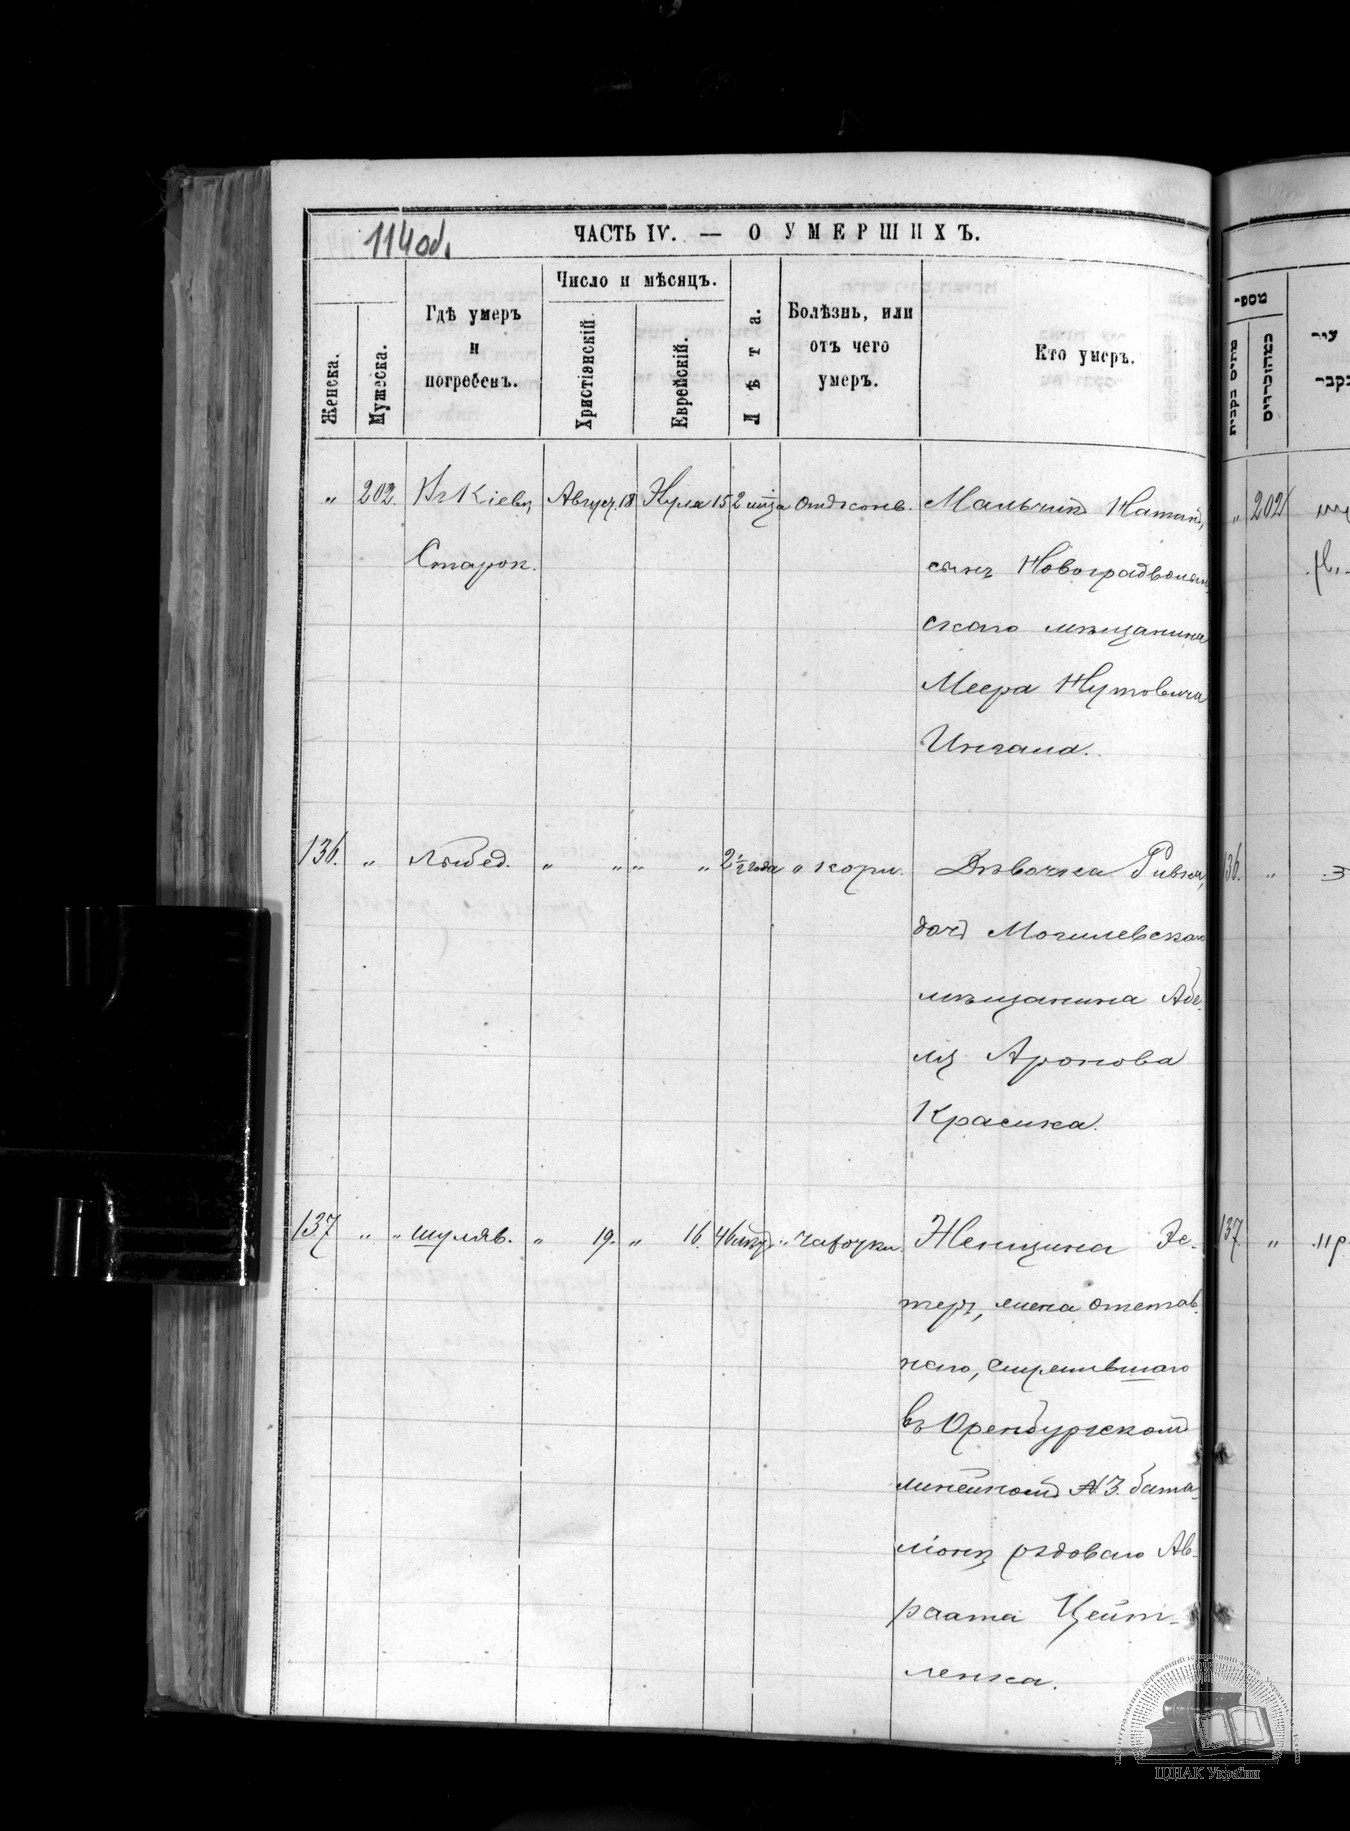 114 об.
ЧАСТЬ IV. — О УМЕРШИХЪ.
Женска.
Мужеска.
Гдѣ умеръ
и
погребенъ.
Число и мѣсяцъ.
Христіанскій.
Еврейскій.
Лѣта.
Болѣзнь, или
отъ чего
умеръ.
Кто умеръ.
מספר
" 202. Въ Кіевѣ, Август. 18 15 2 отъ Мальчикъ
Старок. сынъ Новоградволын
скаго мѣщанина
Меера Нутовича
Ингала.
136. " Лыбед. " " " " 2 1/2 года " кори. Дѣвочка Ривка,
дочь Могилевскаго
мѣщанина Абе-
ля Аронова
Красика.
137 " " шуляв. " 19. " 16. 46 " чахотки. Женщина Эс-
теръ, жена отстав.
наго, служившаго
въ Оренбургскомъ
линейномъ №3. бата-
ліонѣ рядоваго Ав-
раама Цейт-
ленка.
" 202
136. "
137. "
ЦДІАК України